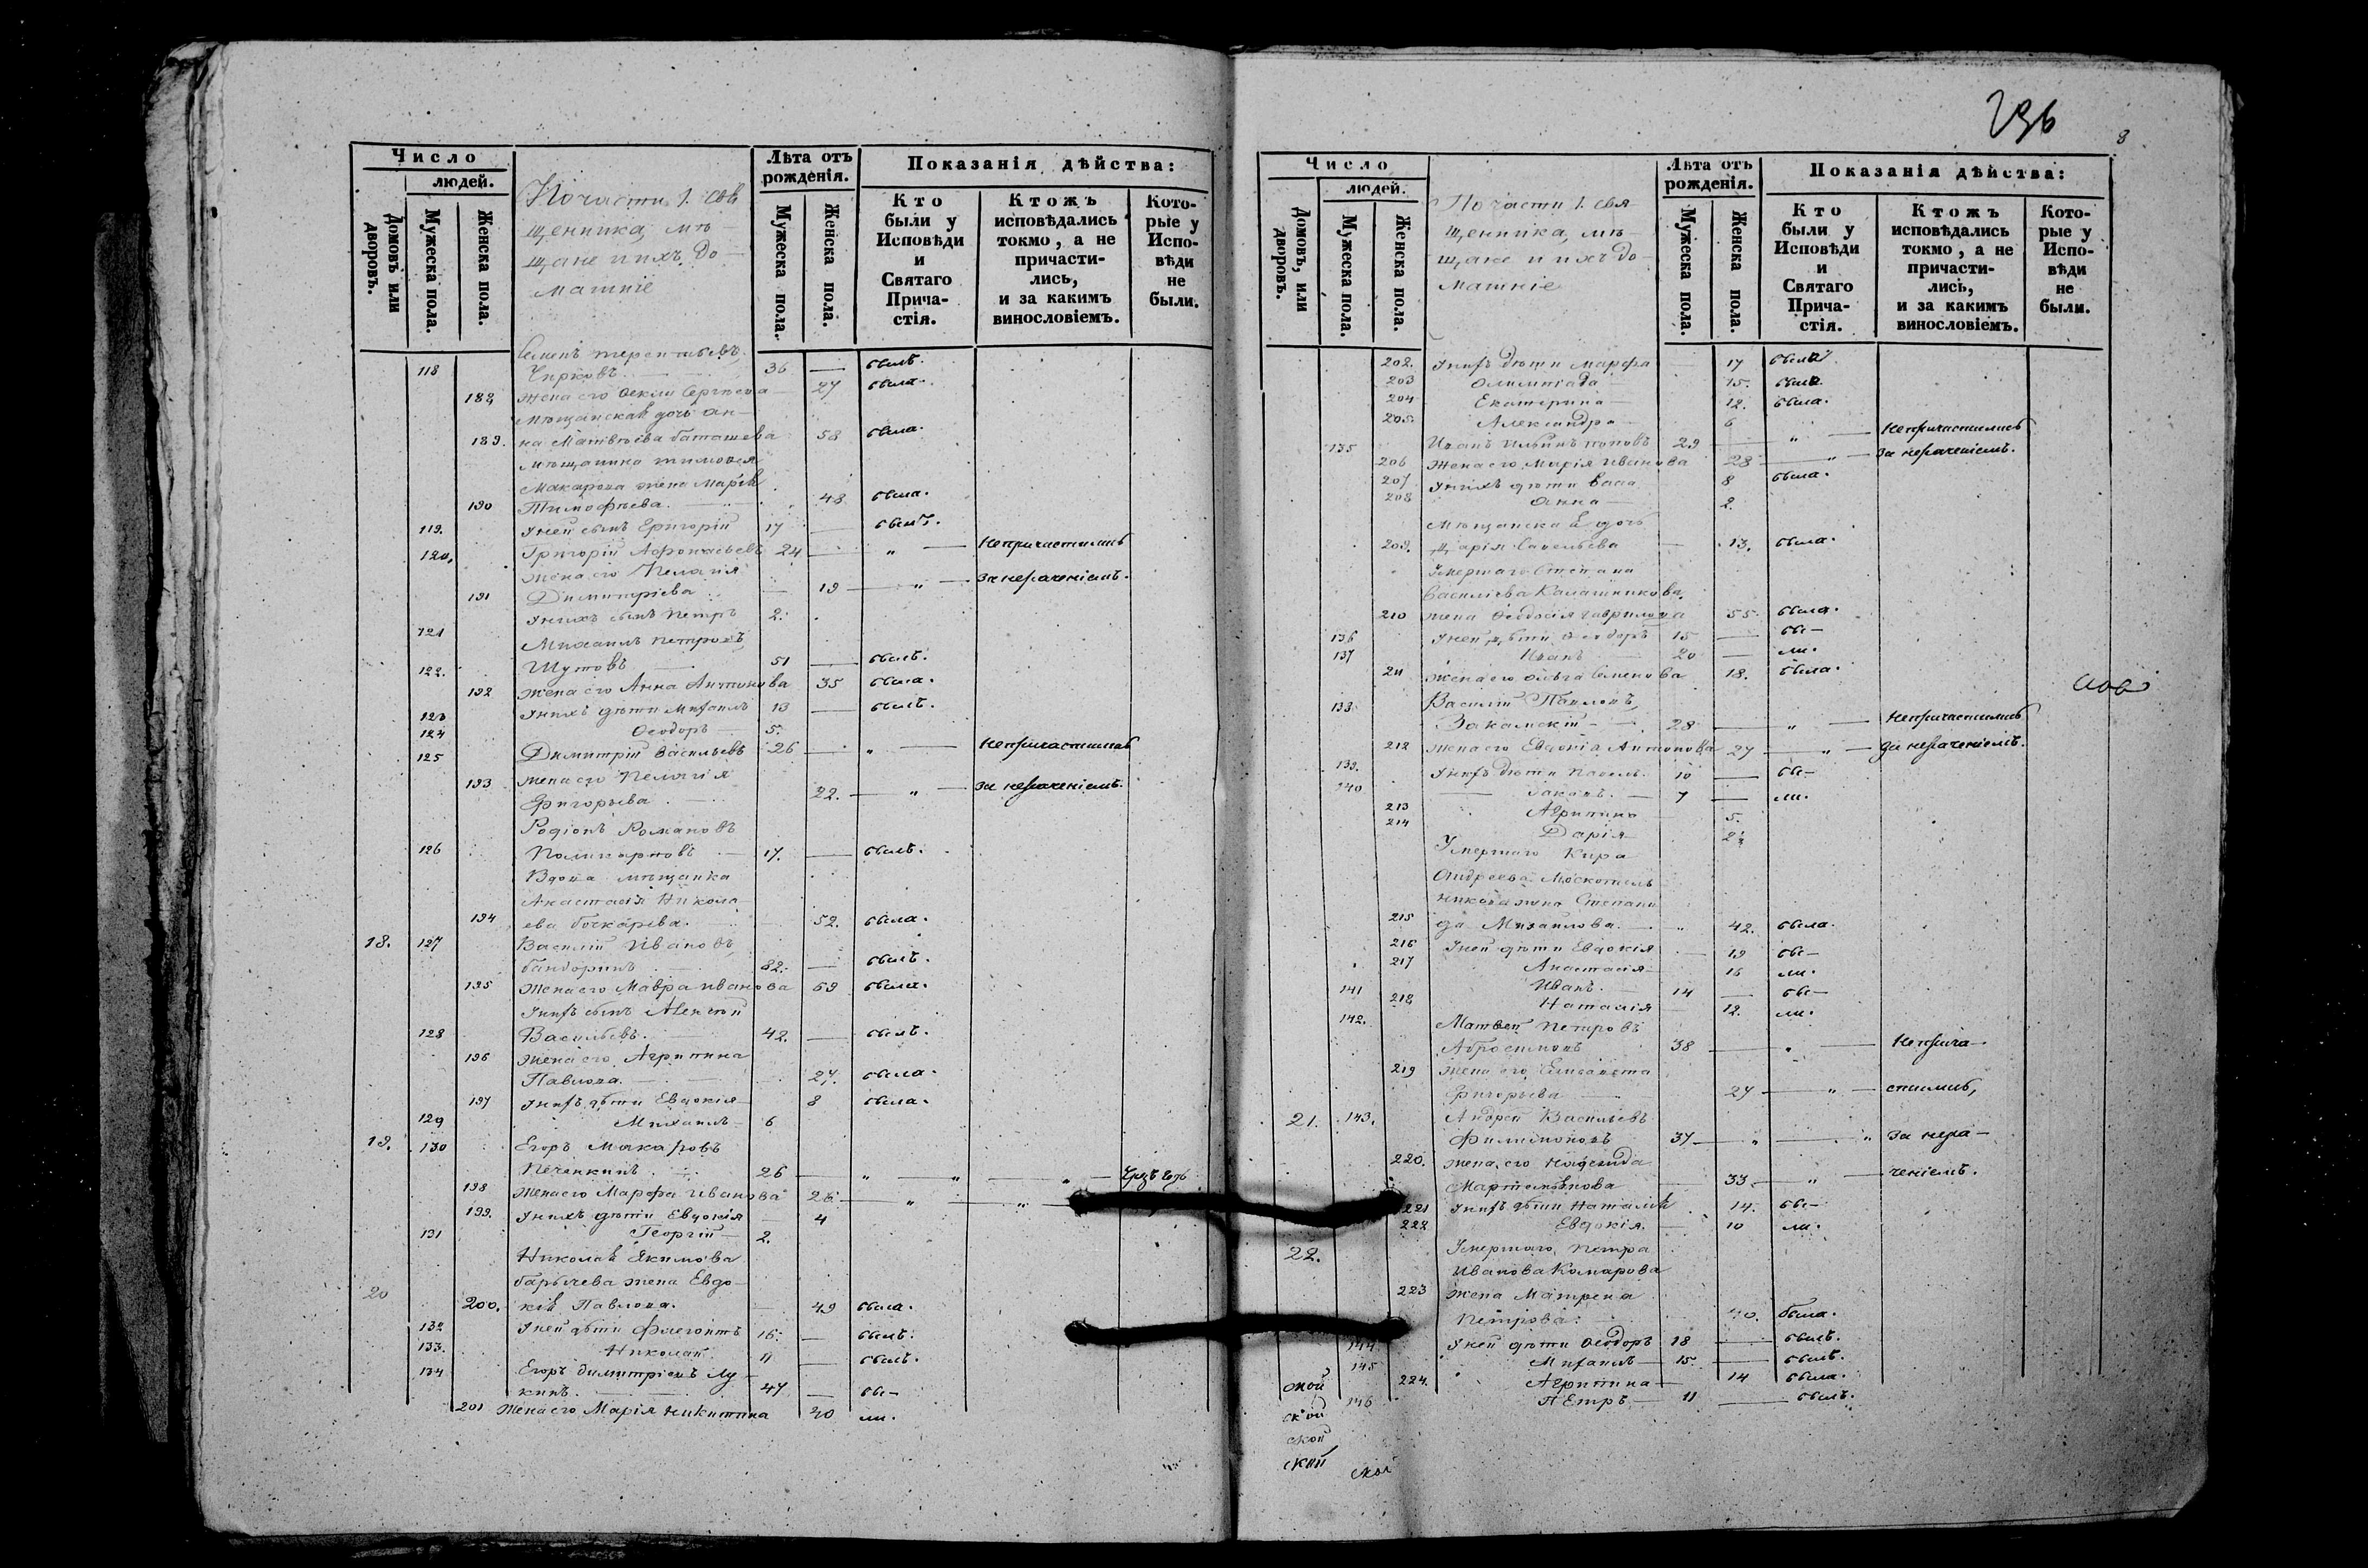 Число
людей.
Домовъ или дворовъ.
Мужеска пола.
Женска пола.
По части 1. свя
щенника, мѣ-
щане и ихъ до-
машніе
Лѣта отъ рожденія.
Мужеска пола.
Женска пола.
Показанія дѣйства:
Кто были у Исповѣди и Святаго Прича- стія.
Ктожъ исповѣдались токмо, а не причасти- лись, и за какимъ винословіемъ.
Кото- рые у Испо- вѣди не были.
Семенъ Терентьевъ
118 Чирковъ. 36 — былъ.
188 жена его Фекла Сергѣева 27 была.
Мѣщанская дочь Ан-
189. на Матвѣева Баташева 58 была.
Мѣщанина Тимофея
Макарова жена Марія
190 Тимофѣева. 48 была.
119. У ней сынъ Григорій 17 — былъ.
120. Григорій Афонасьевъ 24 — „ — непричастились
жена его Пелагія
191 Димитріева — 19 — „ — за нераченіемъ.
121 У нихъ сынъ Петръ 2.
Михаилъ Петровъ
122. Шутовъ 51 — былъ.
192 жена его Анна Антонова 35 была.
123 У нихъ дѣти Михаилъ 13 — былъ.
124 Феодоръ 5.
125 Димитрій Васильевъ 26 — „ — непричастились
193 жена его Пелагія
Григорьева 22. — „ — за нераченіемъ.
Родіонъ Романовъ
126 Поликарповъ 17. — былъ.
Вдова мѣщанка
Анастасія Никола-
194 ева Бочкарева. 52. была.
18. 127 Василій Ивановъ
Бандоринъ 82. — былъ.
195 жена его Мавра Иванова 69 была.
У нихъ сынъ Алексѣй
128 Васильевъ. 42. — былъ.
196 жена его Агрипина
Павлова. 27. была.
197 У нихъ дѣти Евдокія 8 была.
129 Михаилъ 6
19. 130 Егоръ Макаровъ
Печенкинъ 26 — „ — „ — „ —
198 жена его Марфа Иванова 26 — „ — „
199. У нихъ дѣти Евдокія 4
131 Георгій 2.
Николая Якимова
Барычева жена Евдо-
20 200. кія Павлова. — 49 была.
132 У ней дѣти Флегонтъ 16. — былъ.
133. Николай. 11 — былъ.
134 Егоръ Димитріевъ Лу-
кинъ. 47 — бы-
201 Жена его Марія Никитина 40 ли.
236
9
Число
людей.
Домовъ, или дворовъ.
Мужеска пола.
Женска пола.
По части 1. свя
щенника, мѣ-
щане и ихъ до-
машніе
Лѣта отъ рожденія.
Мужеска пола.
Женска пола.
Показанія дѣйства:
Кто были у Исповѣди и Святаго Прича- стія.
Ктожъ исповѣдались токмо, а не причасти- лись, и за какимъ винословіемъ.
Кото- рые у Испо- вѣди не были.
202. У нихъ дѣти Марфа — 17 была
203 Олимпіада 15. была
204 Екатерина 12. была.
205. Александра 6
135 Иванъ Ильинъ Поповъ 29 — „ — непричастились
206 Жена его Марія Иванова 28 — „ — за нераченіемъ.
207 У нихъ дѣти 8 была.
208 Анна 2.
Мѣщанская дочь
209. Дарія Савельева — 13. была.
Умершаго Степана
Васильева Калашникова
210 жена Феодосія Гаврилова 55 была.
136 У ней дѣти Феодоръ 15 — бы-
137 Иванъ 20 — ли.
211 жена его Ольга Семенова 18. была.
138 Василій Павловъ
Закамскій 28 — „ — непричастились
212 жена его Евдокія Антонова 27 — „ — за нераченіемъ.
139. У нихъ дѣти Павелъ 10 — бы-
140 Іаковъ. 7 — ли.
213 Агрипина 5.
214 Дарія 2½
Умершаго Кира
Андреева Москотель-
никова жена Степани-
215 да Михаилова. „ 42. была.
216 У ней дѣти Евдокія — 19 бы-
217 Анастасія 16 ли.
141 Иванъ. 14 — бы-
218 Наталія 12. ли.
142. Матвей Петровъ
Абросимовъ 38 — „ — неприча-
219 жена его Елисавета
Григорьева 27 — „ — стились,
21. 143. Андрей Васильевъ
Филимоновъ 37 — „ — „ за нера-
220. жена его Надежда
Мартемьянова 33 — „ — ченіемъ.
221 У нихъ дѣти Наталія 14. бы-
222 Евдокія. 10 ли.
22. Умершаго Петра
Иванова Комарова
223 жена Матрена
Петрова: 40. была.
144 У ней дѣти Феодоръ 18 — былъ.
145 Михаилъ 15 — былъ.
224. Агрипина 14 была.
146 Петръ 11 — былъ.
ской
ской
ской
ской